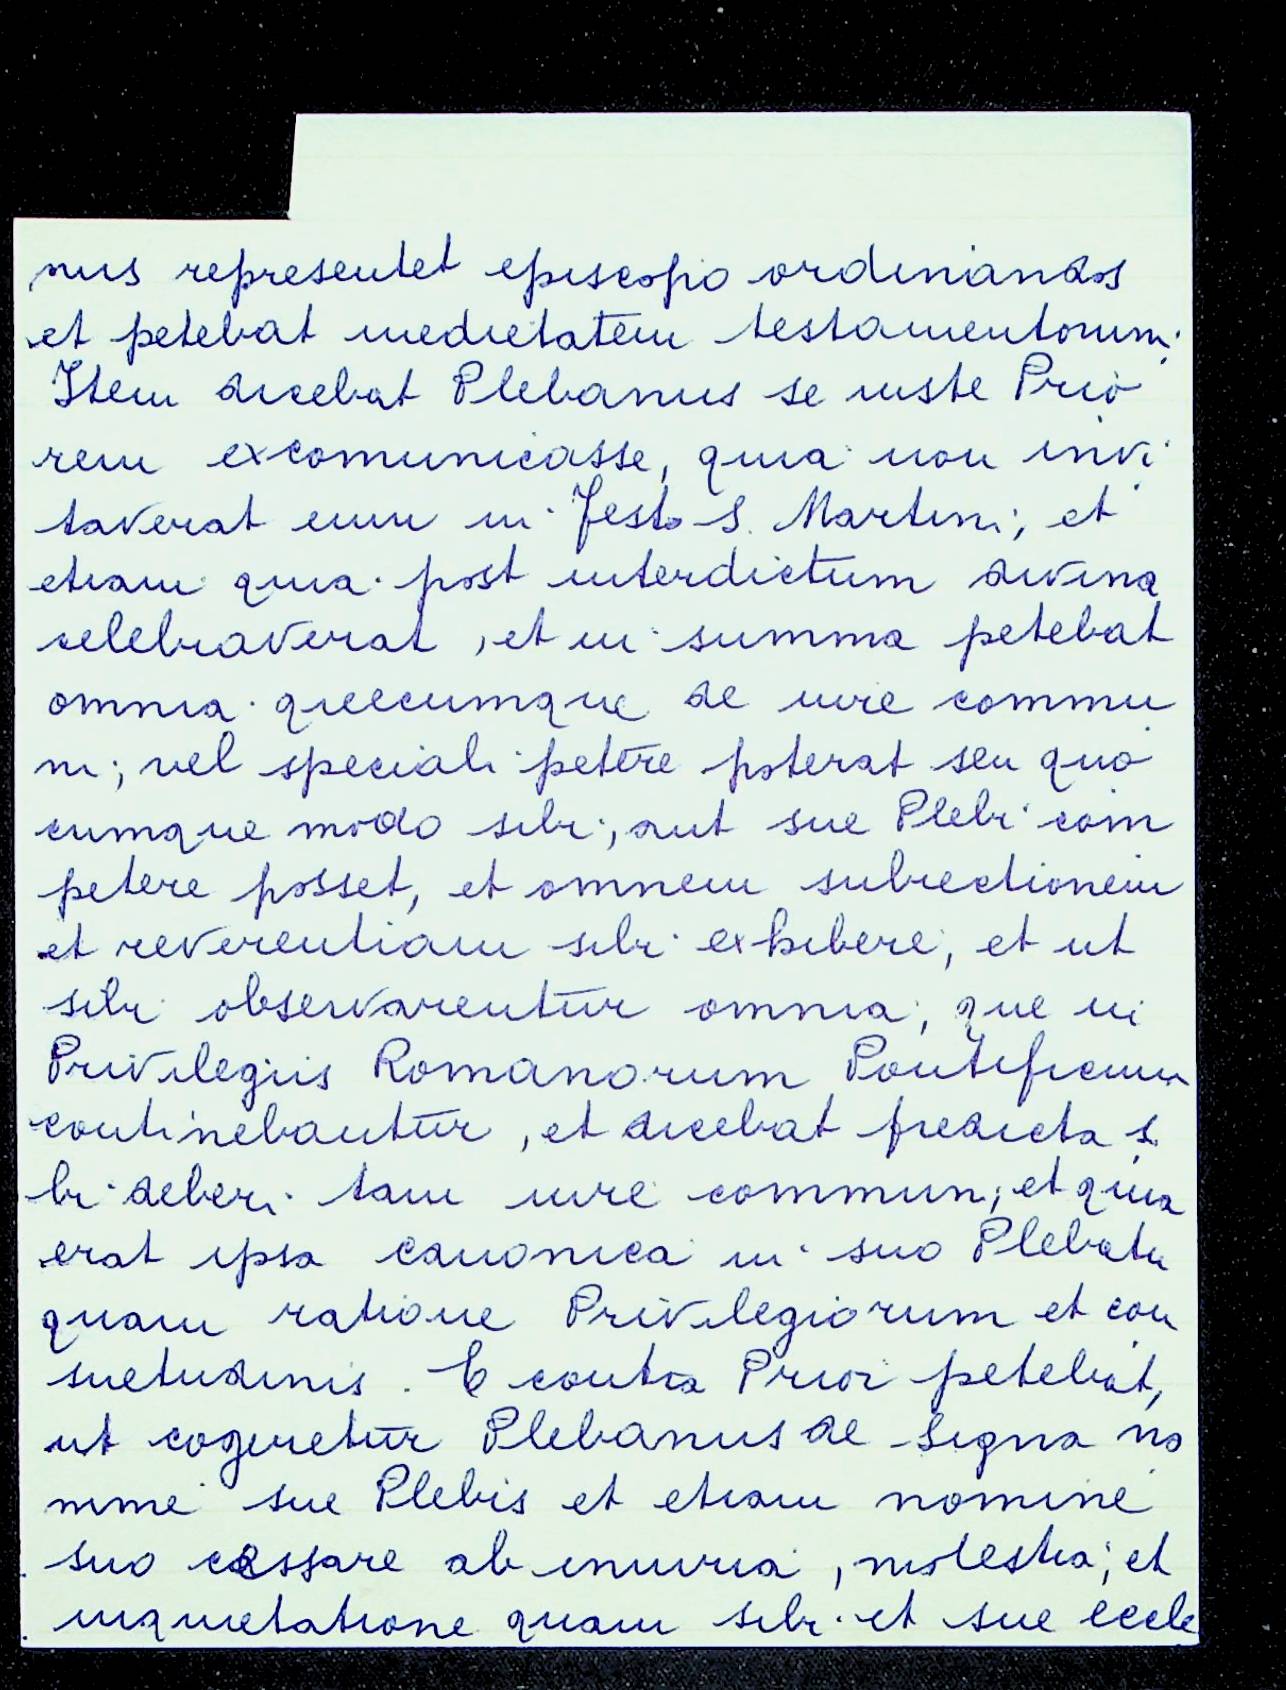 nus representet episcopo ordinandos
et petebat medietatem testamentorum.
Item dicebat Plebanus se iuste Prio
rem excomunicasse, quia non invi
taverat eum in Festo S. Martini, et
etiam quia post interdictum divina
celebraverat, et in summa petebat
omnia quecumque de iure commu
ni, vel speciali petere poterat seu quo
cumque modo sibi, aut sue Plebi com
petere posset, et omnem subiectionem
et reverentiam sibi exhibere, et ut
sibi observarentur omnia, que in
Privilegiis Romanorum Pontificum
continebantur, et dicebat predicta si
bi deberi tam iure communi, et quia
erat ipsa canonica in suo Plebatu
quam ratione Privilegiorum et con
suetudinis. E contra Prior petebat,
ut cogeretur Plebanus de Signa no
mine sue Plebis et etiam nomine
suo cessare ab iniuria, molestia, et
inquietatione quam sibi et sue eccle